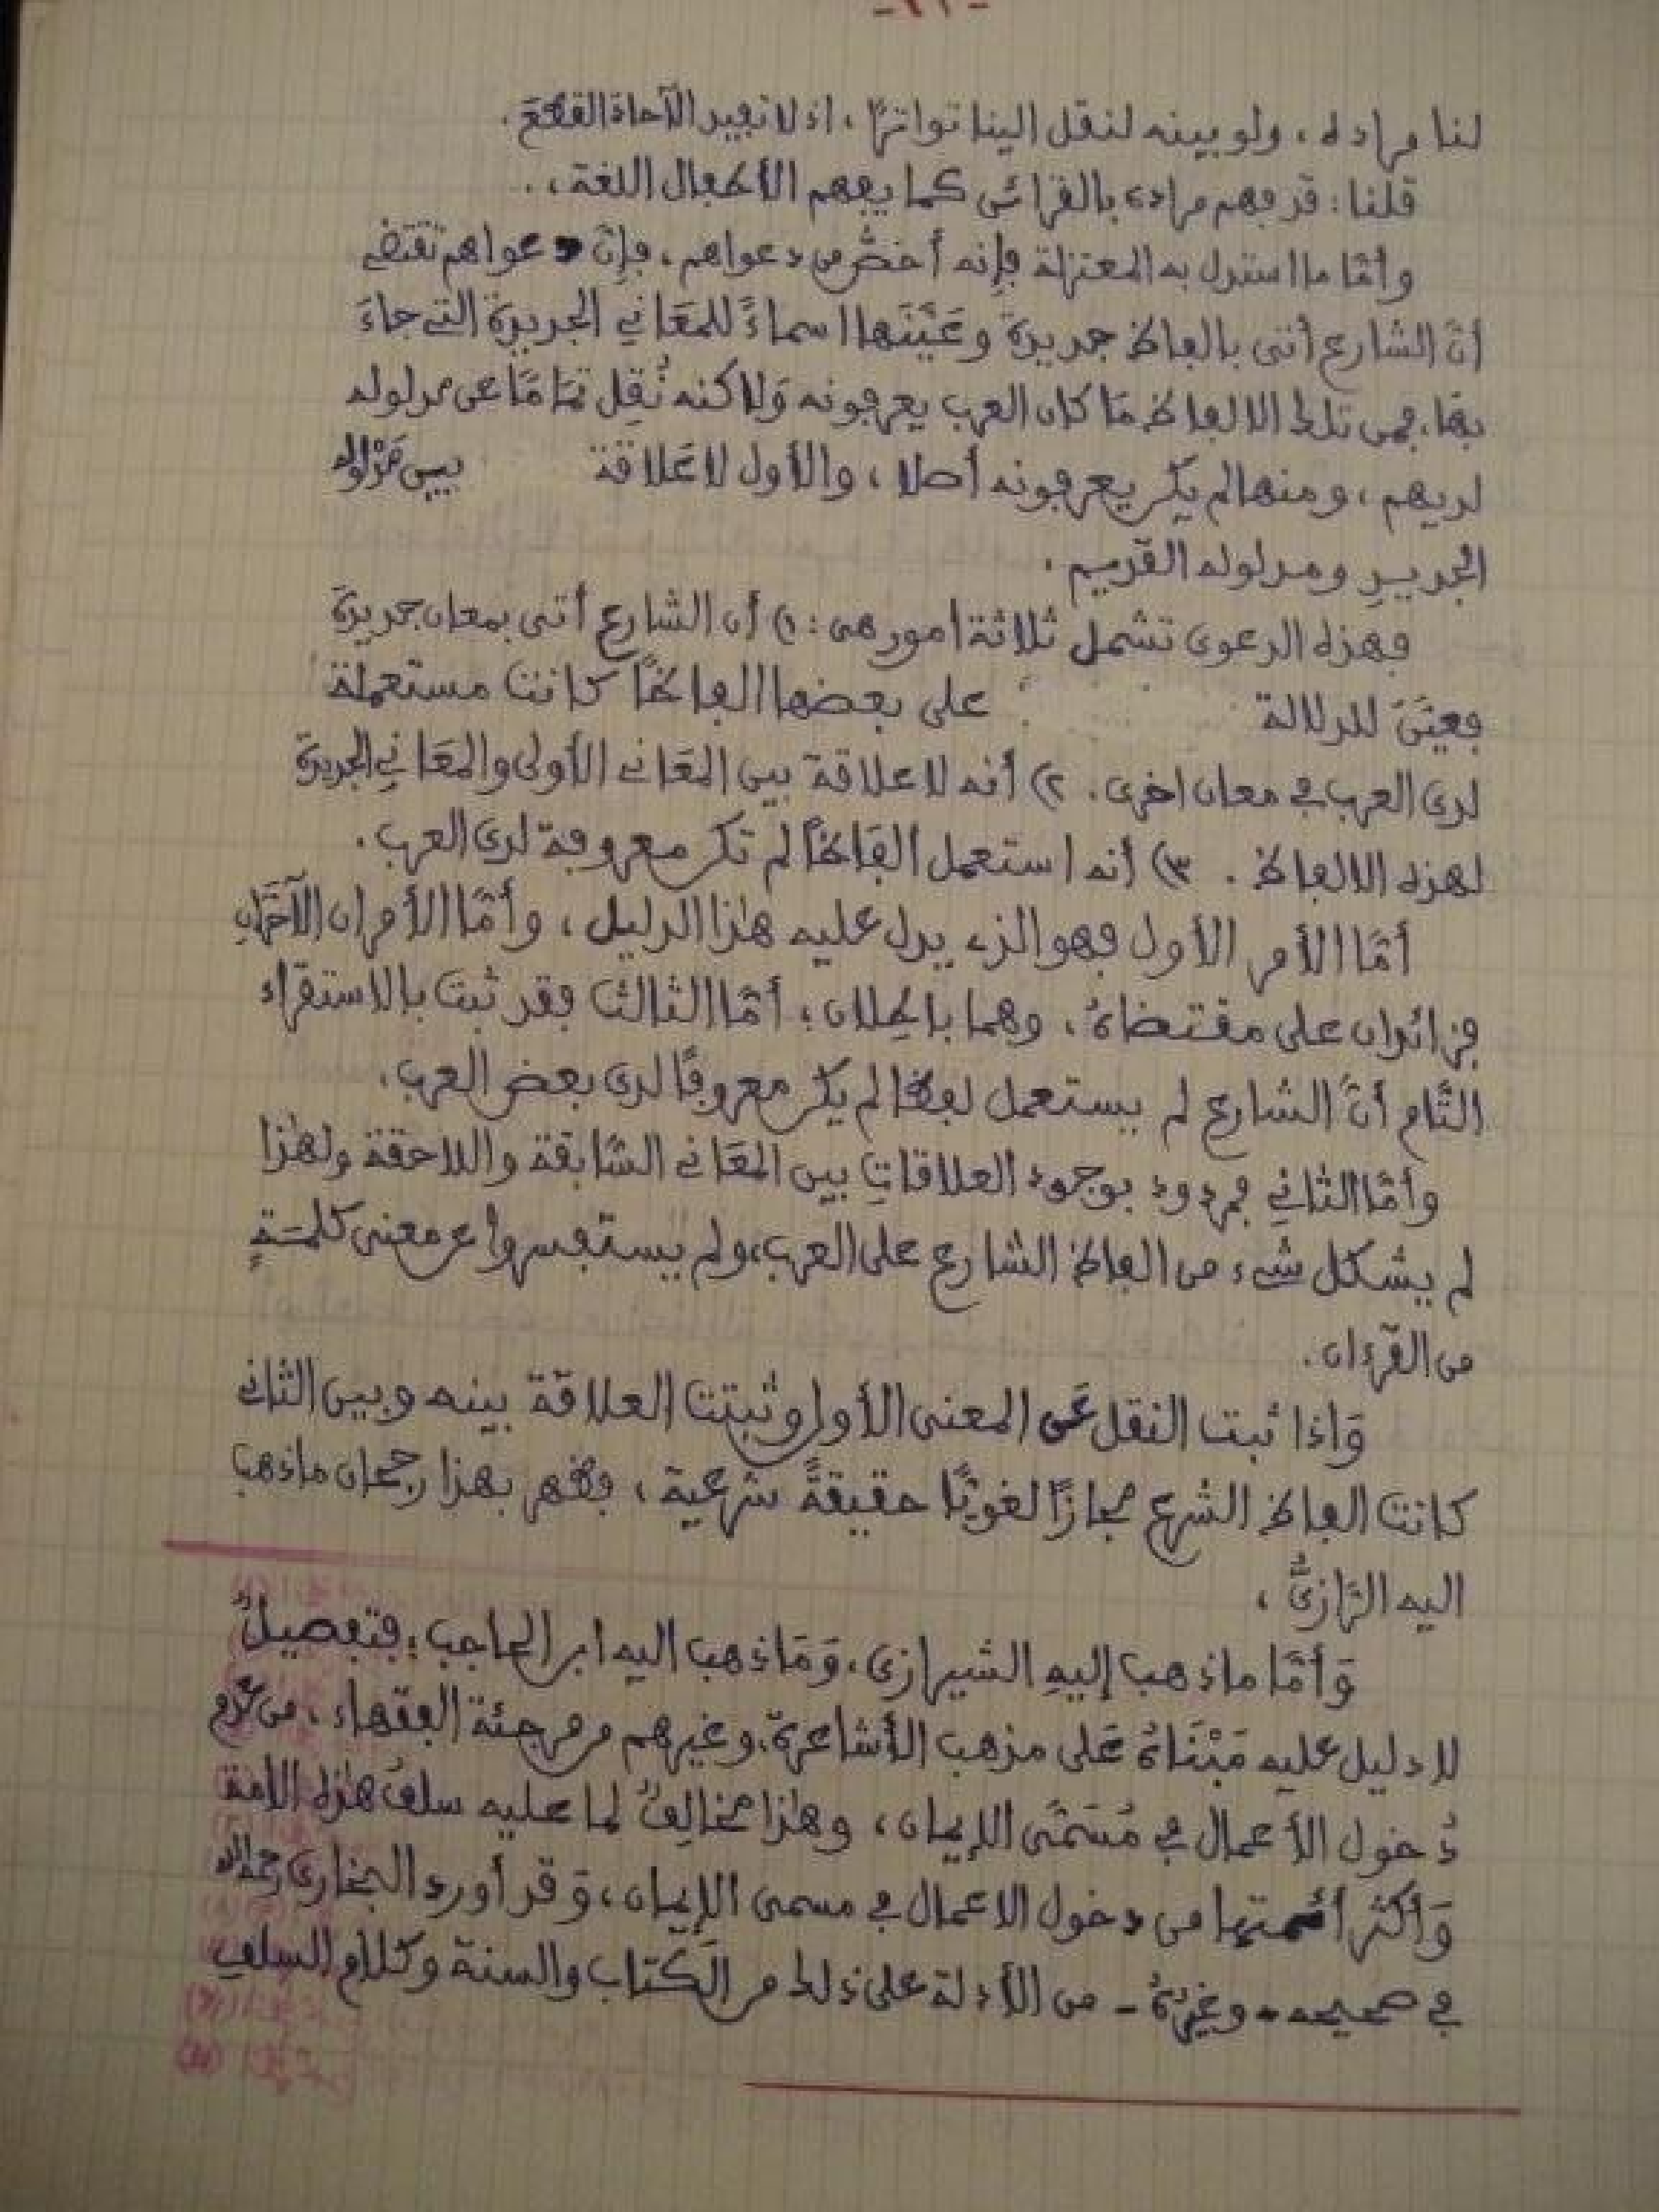 لنا مراده ، ولو بينه لنقل الينا تواترًا ، اذ لا تفيد الآحاد القطع .
قلنا : قد فهم مراده بالقرائن كما يفهم الأطفال اللغة ، .
وأمّا ما استدل به المعتزلة فإنه أخصُّ من دعواهم ، فإنّ دعواهم تقتضي
أنّ الشارع أتى بالفاظ جديدة وعَيَّنَها اسماءً للمعَاني الجديدة التي جاءَ
بها ، فمن تلك الالفاظ مَا كان العرب يعرفونه وَلاكنه نُقِل تمَامًا عن مدلوله
لديهم ، ومنها لم يكن يعرفونه أصلا ، والأول لا عَلاقة بيين مَدْلوله
الجديدِ ومدلوله القديم .
فهذه الدعوى تشمل ثلاثة امور هي : ١) أن الشارع أتى بمعان جديدة
فعيّنَ للدلالة على بعضها الفاظًا كانت مستعملة
لدى العرب في معان اخرى . ٢) أنه لا علاقة بين المعَاني الأولى والمعَاني الجديدة
لهذه الالفاظ . ٣) أنه استعمل الفَاظًا لم تكن معروفة لدى العرب .
أمّا الأمر الأول فهو الذي يدل عليه هٰذا الدليل ، وأمّا الأمران الآخَرانِ
فزائدان على مقتضاهُ ، وهما باطِلان ؛ أمّا الثالث فقد ثبت بالاستقراء
التّام أنّ الشارع لم يستعمل لفظا لم يكن معروفًا لدى بعض العرب .
وأمّا الثاني فمردود بوجود العلاقاتِ بين المعَاني السّابقة واللاحقة ولهٰذا
لم يشكل شيء من الفاظ الشارع على العرب ، ولم يستفسروا عن معنى كلمَةٍ
من القرءان .
وَاذا ثبت النقل عَن المعنى الأول وثبتت العلاقة بينه وبين الثاني
كانت الفاظ الشرع مجازًا لغويًّا حقيقةً شرعية ، فظهر بهذا رجحان ماذهب
اليه الرّازيُّ ،
وَأمّا ماذهب إليهِ الشيرازي ، وَمَاذهب اليه ابن الحاجب ؛ فتفصيلٌ
لا دليل عليه مَبْنَاهُ عَلى مذهب الأشاعرة ، وغيرهم من مرجئة الفقهاء ، من عَدم
دُخول الأعمال في مُسَمّى الإيمان ، وهٰذا مخالِفٌ لما عليه سلفُ هٰذه الأمة
وَأكثر أئمتها من دخول الاعمال في مسمى الإيمان ، وَقد أورد البخاري رحمه الله
في صحيحه - وغيرُهُ - من الأدلة على ذلك من الكتاب والسنة وكلام السلفِ